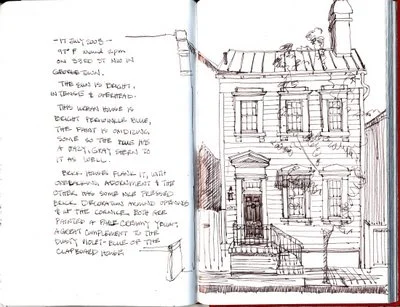 - 17 JULY 2008 -
95° F around 2pm
ON 33RD ST NW IN
GEORGETOWN.
THE SUN IS BRIGHT,
INTENSE & OVERHEAD.
THIS URBAN HOUSE IS
BRIGHT PERIWINKLE BLUE,
THE PAINT IS OXIDIZING
SOME SO THE BLUE HAS
A HAZY, GRAY SHEEN TO
IT AS WELL.
BRICK HOUSES FLANK IT,
ADORNMENT & THE
OTHER HAS SOME NICE PRESSED
BRICK DECORATION AROUND OPENINGS
& AT THE CORNICE. BOTH ARE
PAINTED A PALE CREAMY YELLOW,
A GREAT COMPLEMENT TO THE
DUSTY VIOLET-BLUE OF THE
CLAPBOARD HOUSE.